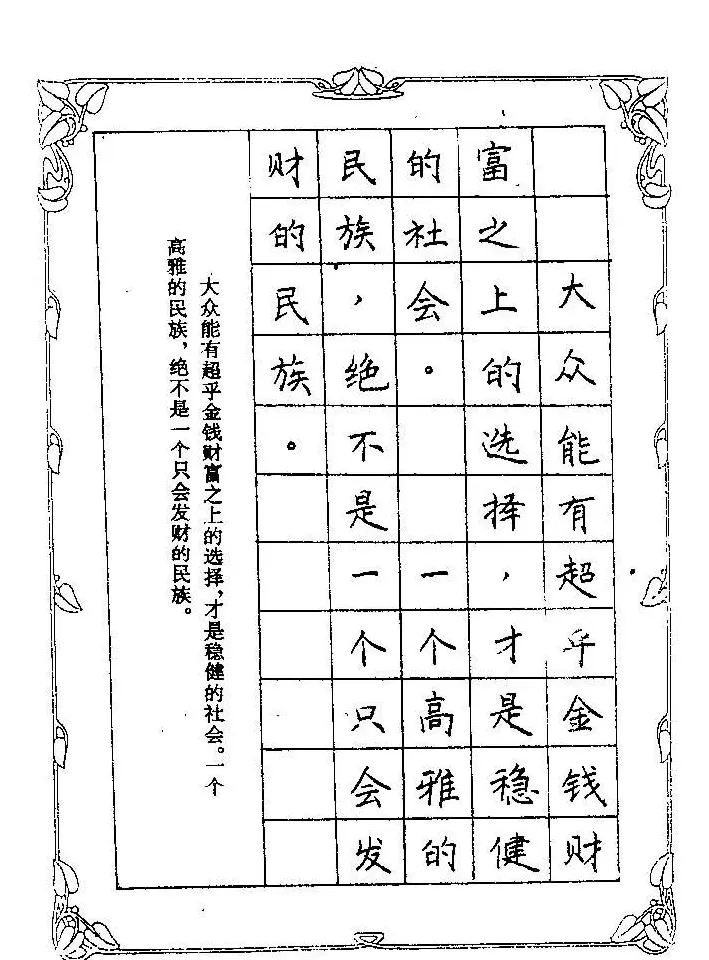 大众能有超乎金钱财
富之上的选择，才是稳健
的社会。一个高雅的
民族，绝不是一个只会发
财的民族。
大众能有超乎金钱财富之上的选择，才是稳健的社会。一个
高雅的民族，绝不是一个只会发财的民族。